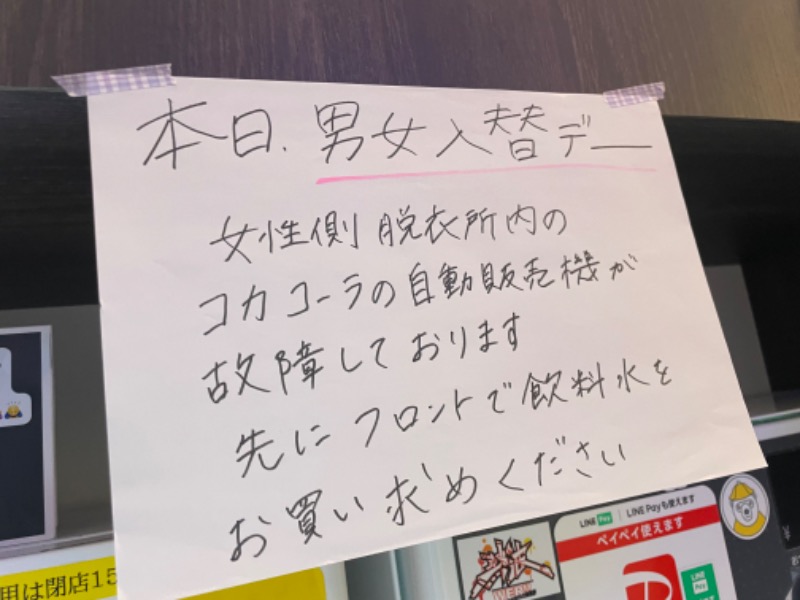 本日、男女入替デー
女性側 脱衣所内の
コカコーラの自動販売機が
故障しております
先にフロントで飲料水を
お買い求めください
用は閉店15
LINE Pay LINE Payも使えます
ペイペイ使えます
LINE Pay